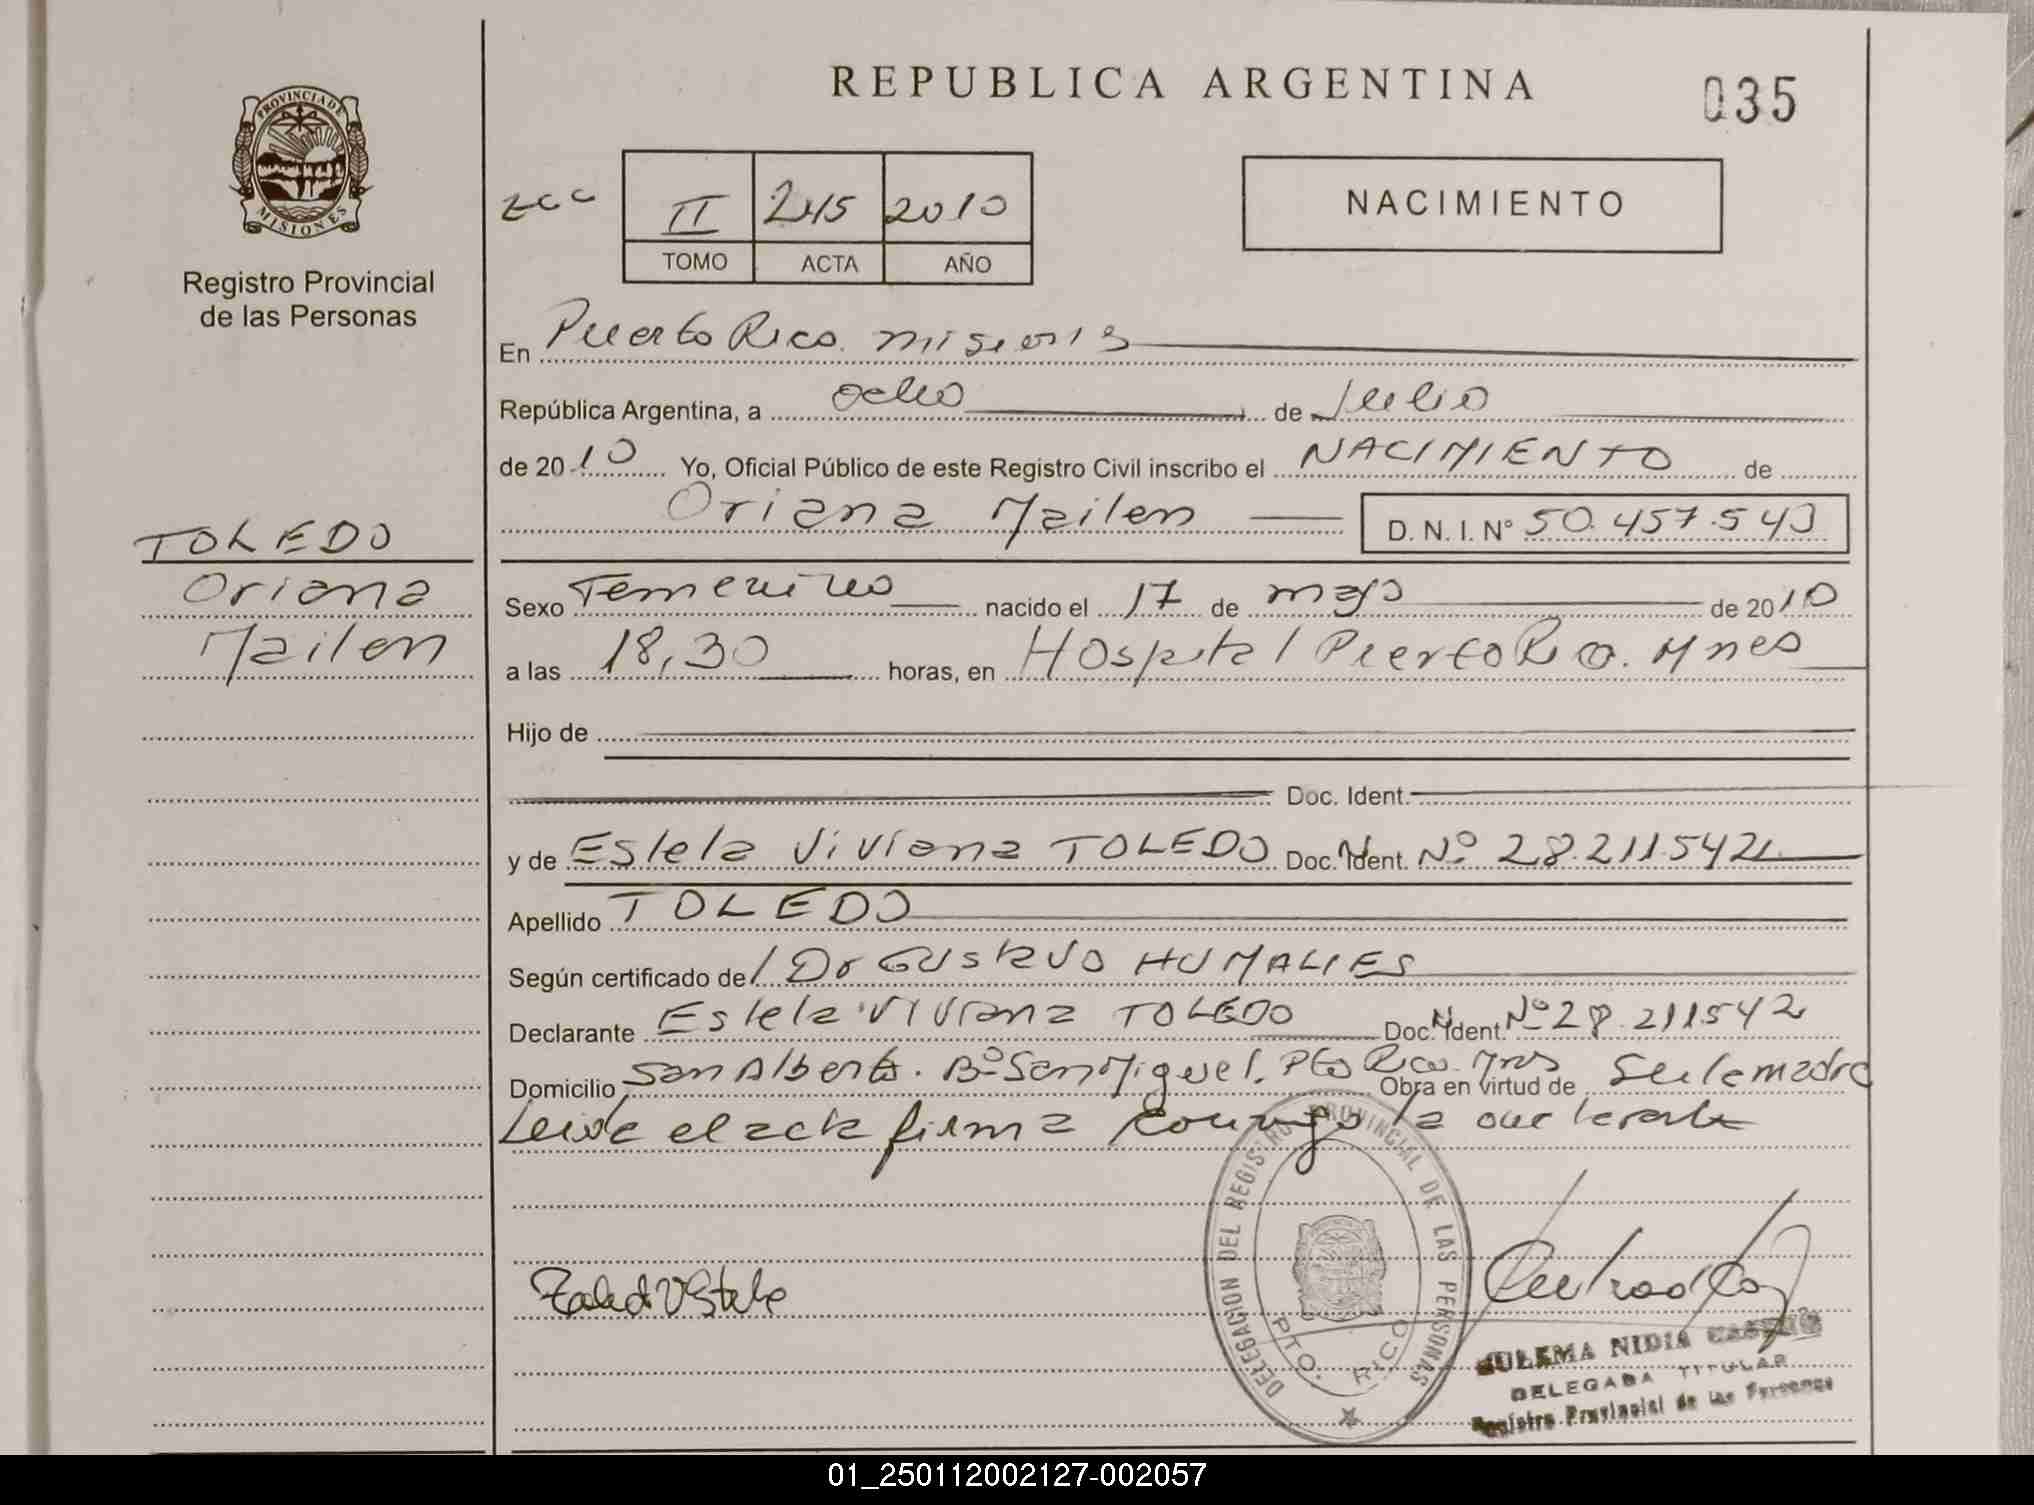 REPUBLICA ARGENTINA
035
PROVINCIA DE
MISIONES
Registro Provincial
de las Personas
II 245 2010
TOMO ACTA AÑO
NACIMIENTO
En Puerto Rico. Misiones
República Argentina, a ocho de Julio
de 2010 Yo, Oficial Público de este Registro Civil inscribo el NACIMIENTO de
Oriana Mailen D. N. I. N° 50.457.543
TOLEDO
Oriana
Mailen
Sexo Femenino nacido el 17 de mayo de 2010
a las 18,30 horas, en Hospital Puerto Rico. Mnes
Hijo de
Doc. Ident.
y de Estela Viviana TOLEDO Doc. N. Ident. Nº 28.211.542
Apellido TOLEDO
Según certificado de / Dr Gustavo
Declarante Estela Viviana TOLEDO Doc. N. Ident. Nº 28.211542
Domicilio San Alberto. Bº San Miguel. Pto Rico. Mnes Obra en virtud de Ser la madre
Leida el acta firma conmigo la declarante
Toledo V Estela
DELEGACION DEL REGISTRO PROVINCIAL DE LAS PERSONAS
PTO. RICO
ZULEMA NIDIA
DELEGADA TITULAR
Registro Provincial de las Personas
01_250112002127-002057